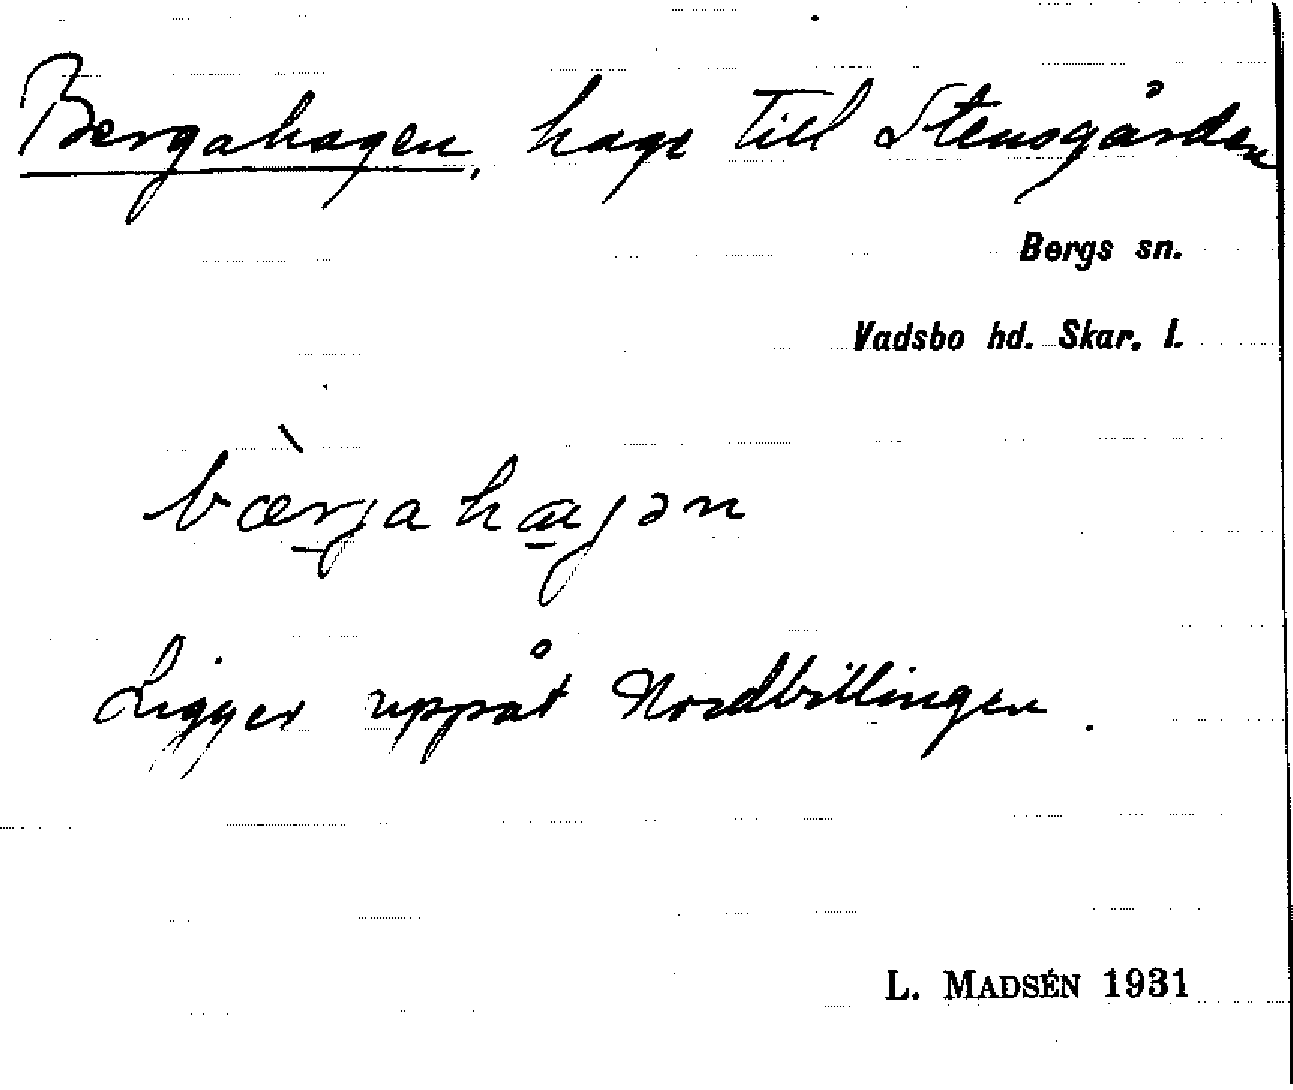 Bergahagen, hage till Stensgården
Bergs sn.
Vadsbo hd. Skar. l.
bærgahagən
Ligger uppåt Nordbillingen.
L. MADSÉN 1931